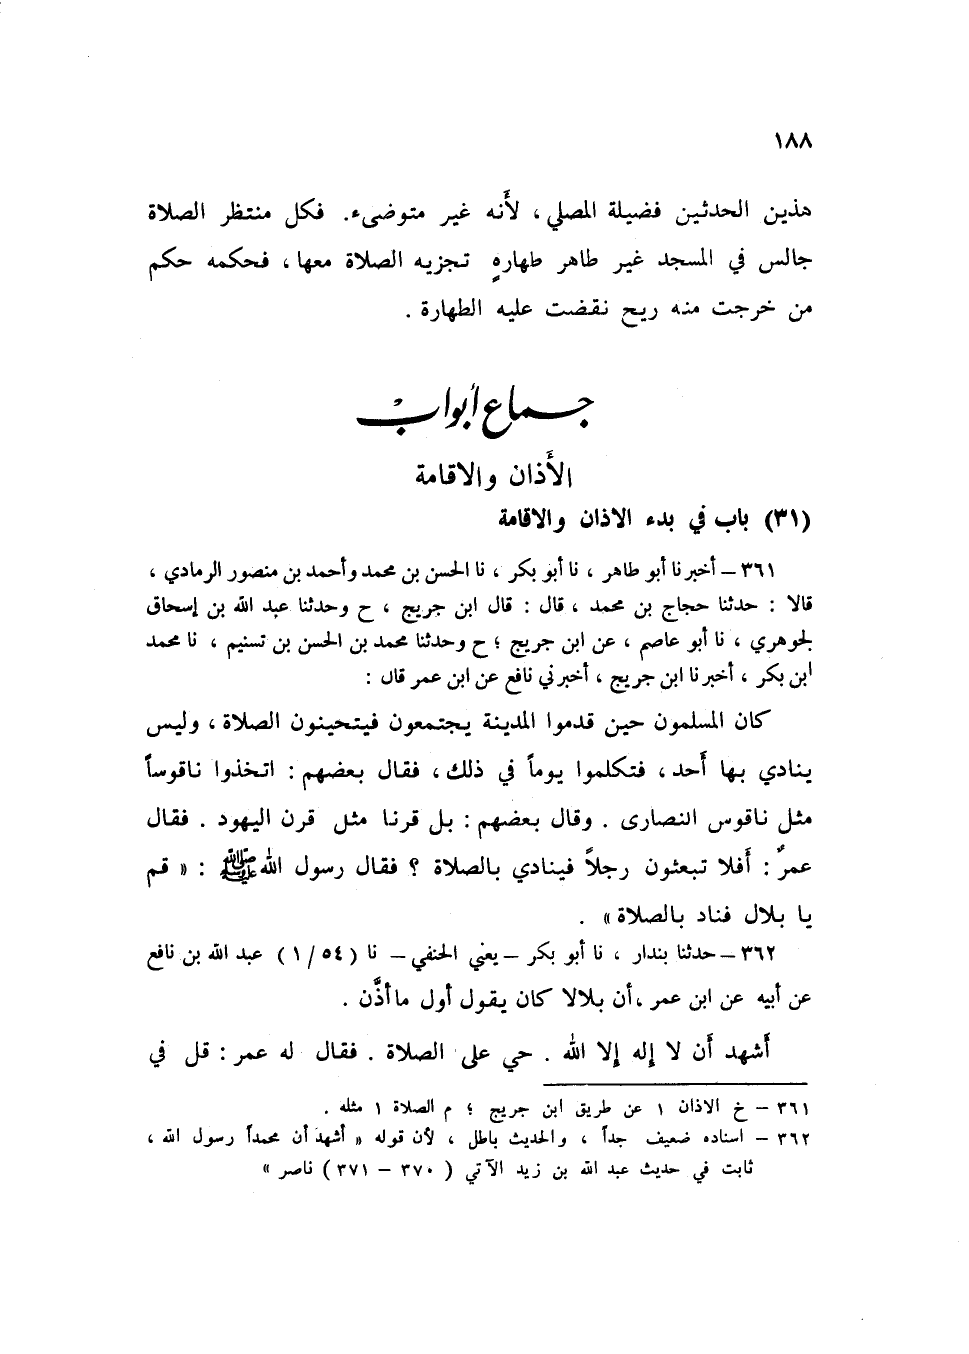 ١٨٨
هذين الحدثين فضيلة المصلي، لأَنه غير متوضىء. فكل منتظر الصلاة
جالس في المسجد غير طاهر طهارهٍ تجزيه الصلاة معها، فحكمه حكم
من خرجت منه ريح نقضت عليه الطهارة .
جماع أبواب
الأَذان والاقامة
(٣١) باب في بدء الاذان والاقامة
٣٦١ – أخبرنا أبو طاهر ، نا أبو بكر ، نا الحسن بن محمد وأحمد بن منصور الرمادي ،
قالا : حدثنا حجاج بن محمد ، قال : قال ابن جريج ، ح وحدثنا عبد الله بن إسحاق
لجوهري ، نا أبو عاصم ، عن ابن جريج ؛ ح وحدثنا محمد بن الحسن بن تسنيم ، نا محمد
ابن بكر ، أخبرنا ابن جريج ، أخبرني نافع عن ابن عمر قال :
كان المسلمون حين قدموا المدينة يجتمعون فيتحينون الصلاة ، وليس
ينادي بها أَحد ، فتكلموا يوماً في ذلك ، فقال بعضهم : اتخذوا ناقوساً
مثل ناقوس النصارى . وقال بعضهم : بل قرنا مثل قرن اليهود . فقال
عمرٌ : أَفلا تبعثون رجلاً فينادي بالصلاة ؟ فقال رسول الله ﷺ : « قم
يا بلال فناد بالصلاة » .
٣٦٢ – حدثنا بندار ، نا أبو بكر – يعني الحنفي – نا ( ٥٤ / ١ ) عبد الله بن نافع
عن أبيه عن ابن عمر ، أن بلالا كان يقول أول ما أذَّن .
أَشهد أَن لا إله إلا الله . حي على الصلاة . فقال له عمر : قل في
٣٦١ – خ الاذان ١ عن طريق ابن جريج ؛ م الصلاة ١ مثله .
٣٦٢ – اسناده ضعيف جداً ، والحديث باطل ، لأن قوله « أشهد أن محمداً رسول الله ،
ثابت في حديث عبد الله بن زيد الآتي ( ٣٧٠ – ٣٧١ ) ناصر »